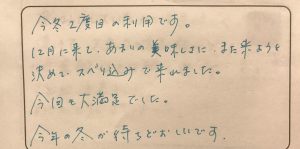 今冬2度目の利用です。
12月に来て、あまりの美味しさに、また来ようと
決めて、スベり込みで来れました。
今回も大満足でした。
今年の冬が待ちどおしいです.